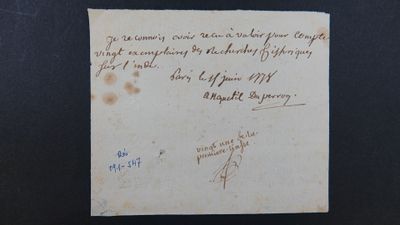 Je reconnois avoir recu a valoir pour compte
vingt exemplaires des Recherches historiques
sur l'inde.
Paris le 15 juin 1778
anquetil Duperron
vingt une de la
premiere
Rés